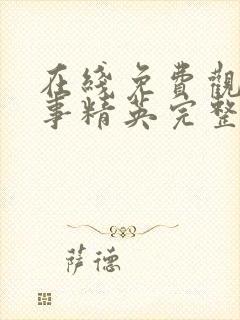 在綫免費觀
事精英完整
薩德